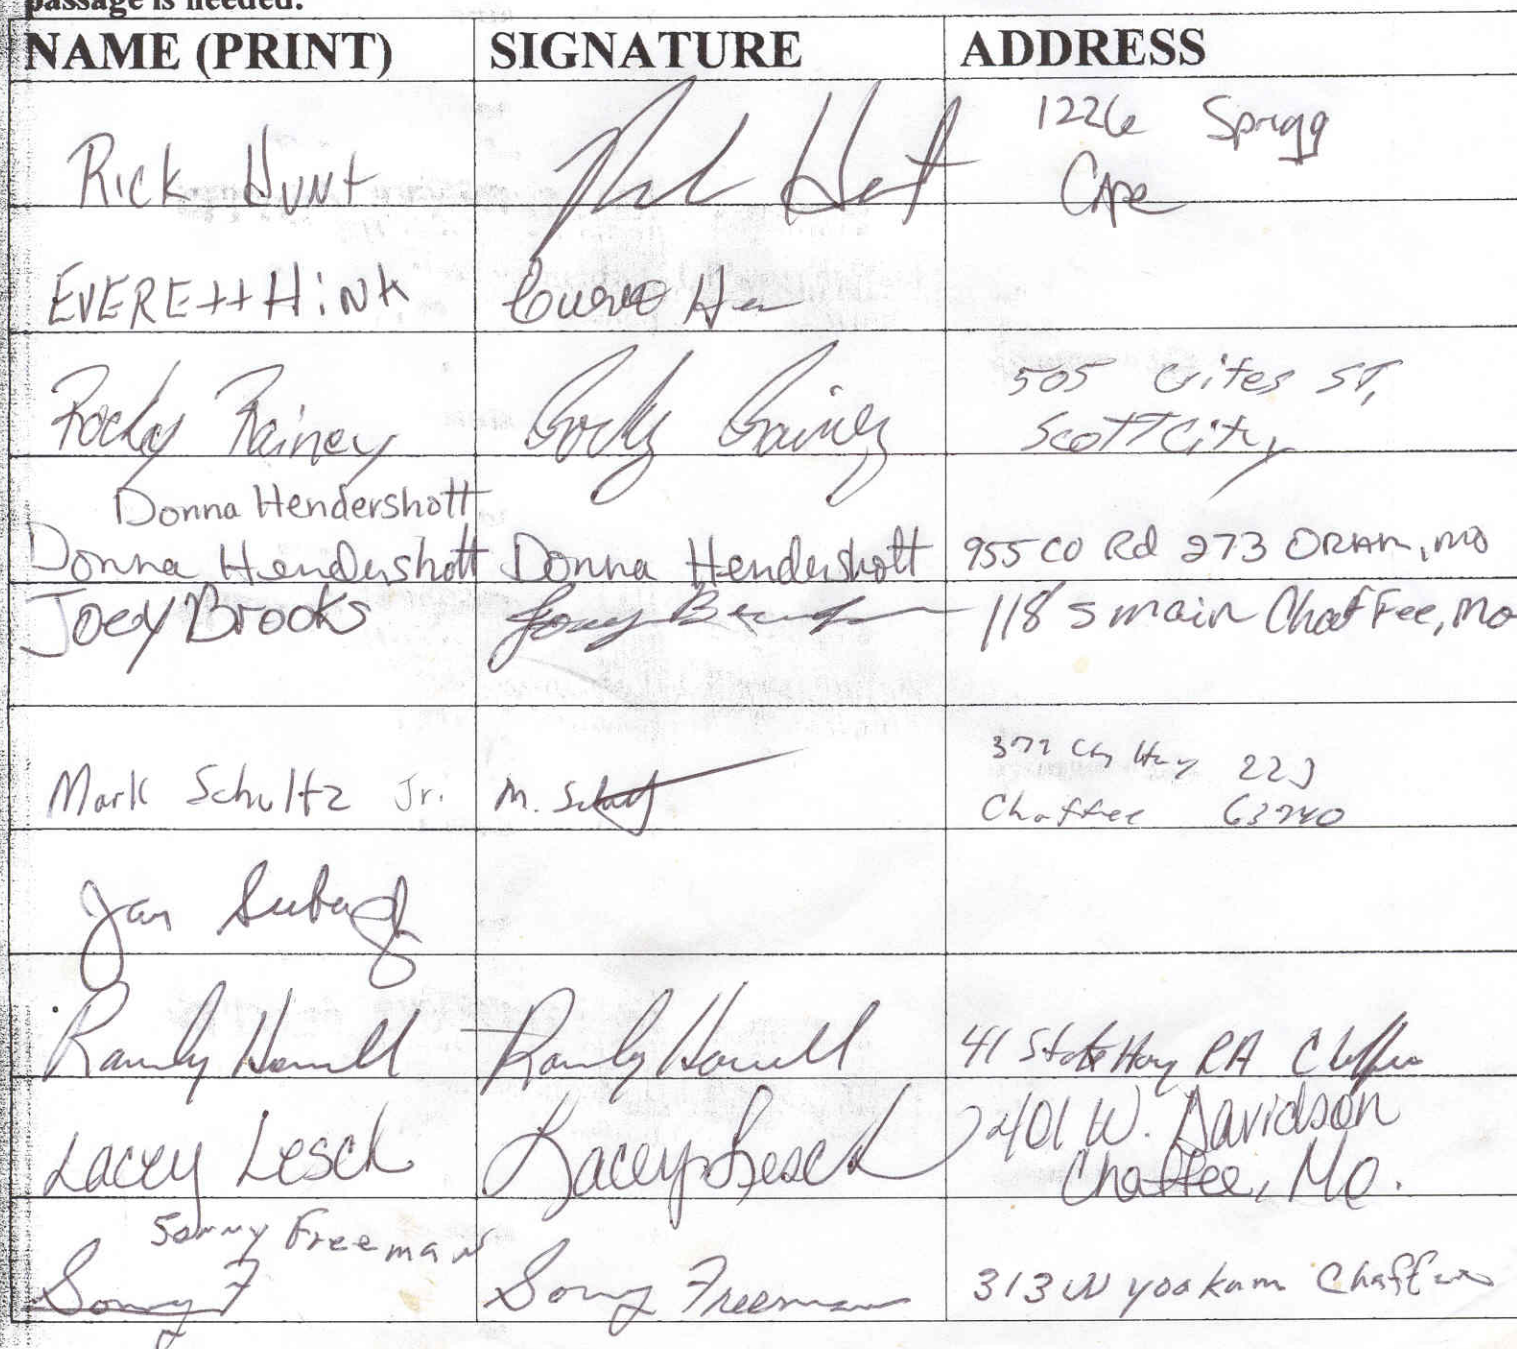 passage is needed.
NAME (PRINT) SIGNATURE ADDRESS
Rick Hunt 1226 Sprigg
Cape
EVEREtt HiNk
Rocky Rainey Rocky Rainey 505 Crites ST,
Scott City
Donna Hendershott
Donna Hendershott Donna Hendershott 955 CO Rd 273 ORAN, MO
Joey Brooks Joey 118 S Main Chaffee, Mo
Mark Schultz Jr. M. 
Chaffee 63740
Jan
Randy Howell Randy Howell 41 State Hwy RA Chaffee
Lacey Lesch Lacey Lesch 2401 W. Davidson
Chaffee, Mo.
Sonny Freeman
Sonny F Sonny Freeman 313 W yoakum Chaffee